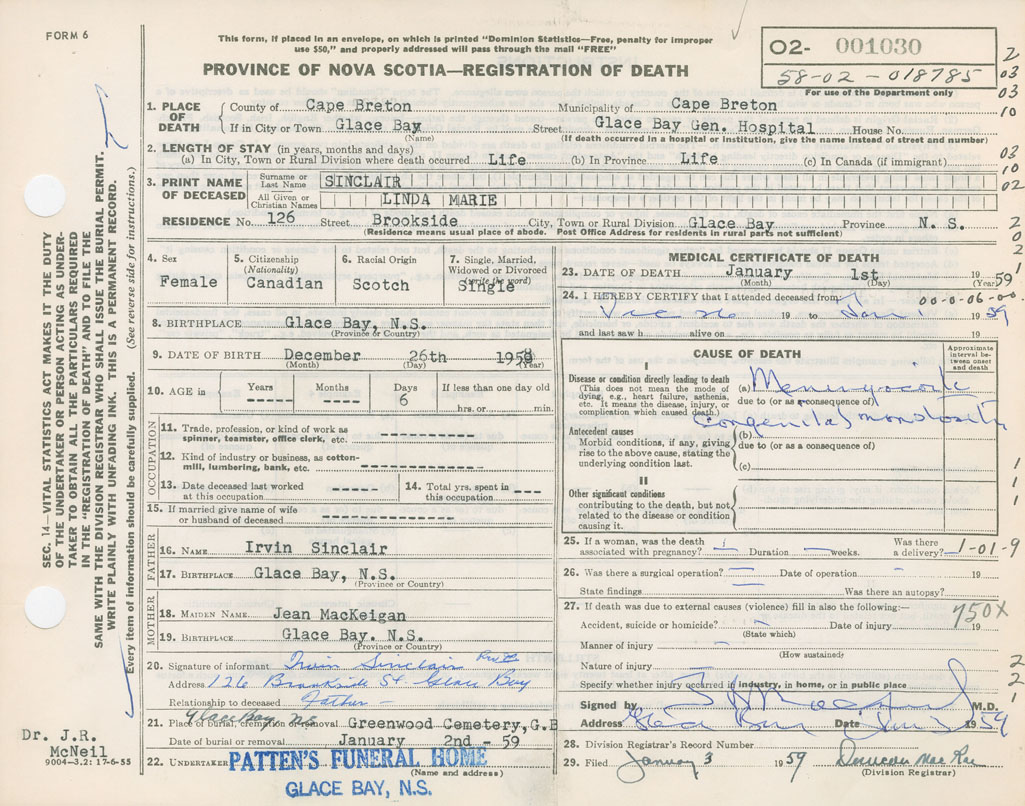 FORM 6
This form, if placed in an envelope, on which is printed "Dominion Statistics—Free, penalty for improper
use $50," and properly addressed will pass through the mail "FREE"
PROVINCE OF NOVA SCOTIA—REGISTRATION OF DEATH
O2- 001030
58-02-018785
For use of the Department only
2
03
03
10
03
10
02
2
0
2
1
1. PLACE OF DEATH
County of Cape Breton Municipality of Cape Breton
If in City or Town Glace Bay Street Glace Bay Gen. Hospital House No.
(Name) (If death occurred in a hospital or institution, give the name instead of street and number)
2. LENGTH OF STAY (in years, months and days)
(a) In City, Town or Rural Division where death occurred Life (b) In Province Life (c) In Canada (if immigrant)
3. PRINT NAME OF DECEASED
Surname or Last Name SINCLAIR
All Given or Christian Names LINDA MARIE
RESIDENCE No. 126 Street Brookside City, Town or Rural Division Glace Bay Province N. S.
(Residence means usual place of abode. Post Office Address for residents in rural parts not sufficient)
4. Sex
Female
5. Citizenship
(Nationality)
Canadian
6. Racial Origin
Scotch
7. Single, Married,
Widowed or Divorced
(write the word)
Single
8. BIRTHPLACE Glace Bay, N.S.
(Province or Country)
9. DATE OF BIRTH December 26th 1958
(Month) (Day) (Year)
10. AGE in Years Months Days If less than one day old
------ ------ 6 hrs. or min.
OCCUPATION
11. Trade, profession, or kind of work as
spinner, teamster, office clerk, etc. -------------
12. Kind of industry or business, as cotton-
mill, lumbering, bank, etc. ---------------
13. Date deceased last worked
at this occupation -----
14. Total yrs. spent in
this occupation ---
15. If married give name of wife
or husband of deceased -------------
FATHER
16. NAME Irvin Sinclair
17. BIRTHPLACE Glace Bay, N.S.
(Province or Country)
MOTHER
18. MAIDEN NAME Jean MacKeigan
19. BIRTHPLACE Glace Bay. N.S.
(Province or Country)
20. Signature of informant Irvin Sinclair
Address 126 Brookside St Glace Bay
Relationship to deceased Father -
Glace Bay NS
21. Place of burial, cremation or removal Greenwood Cemetery, G.B
Date of burial or removal January 2nd - 59
22. UNDERTAKER PATTEN'S FUNERAL HOME
(Name and address)
GLACE BAY, N.S.
MEDICAL CERTIFICATE OF DEATH
23. DATE OF DEATH January 1st 1959
(Month) (Day) (Year)
24. I HEREBY CERTIFY that I attended deceased from 00-0-06-00
19 to Jan 1 1959
and last saw h alive on 19
CAUSE OF DEATH
Approximate
interval be-
tween onset
and death
I
Disease or condition directly leading to death
(This does not mean the mode of
dying, e.g., heart failure, asthenia,
etc. It means the disease, injury, or
complication which caused death.)
(a) 
due to (or as a consequence of)
Congenital monstrosity
Antecedent causes
Morbid conditions, if any, giving
rise to the above cause, stating the
underlying condition last.
(b)
due to (or as a consequence of)
(c)
1
1
1
II
Other significant conditions
contributing to the death, but not
related to the disease or condition
causing it.
25. If a woman, was the death
associated with pregnancy? Duration weeks. Was there
a delivery? 1-01-9
26. Was there a surgical operation? Date of operation 19
State findings Was there an autopsy?
27. If death was due to external causes (violence) fill in also the following:— 750X
Accident, suicide or homicide? Date of injury 19
(State which)
Manner of injury
(How sustained)
Nature of injury
Specify whether injury occurred in industry, in home, or in public place
2
2
1
Signed by M.D.
Address Glace Bay Date Jan 3 1959
28. Division Registrar's Record Number
29. Filed January 3 1959 Duncan MacRae
(Division Registrar)
SEC. 14—VITAL STATISTICS ACT MAKES IT THE DUTY
OF THE UNDERTAKER OR PERSON ACTING AS UNDER-
TAKER TO OBTAIN ALL THE PARTICULARS REQUIRED
IN THE "REGISTRATION OF DEATH" AND TO FILE THE
SAME WITH THE DIVISION REGISTRAR WHO SHALL ISSUE THE BURIAL PERMIT.
WRITE PLAINLY WITH UNFADING INK. THIS IS A PERMANENT RECORD.
Every item of information should be carefully supplied. (See reverse side for instructions.)
Dr. J.R.
McNeil
9004-3.2: 17-6-55